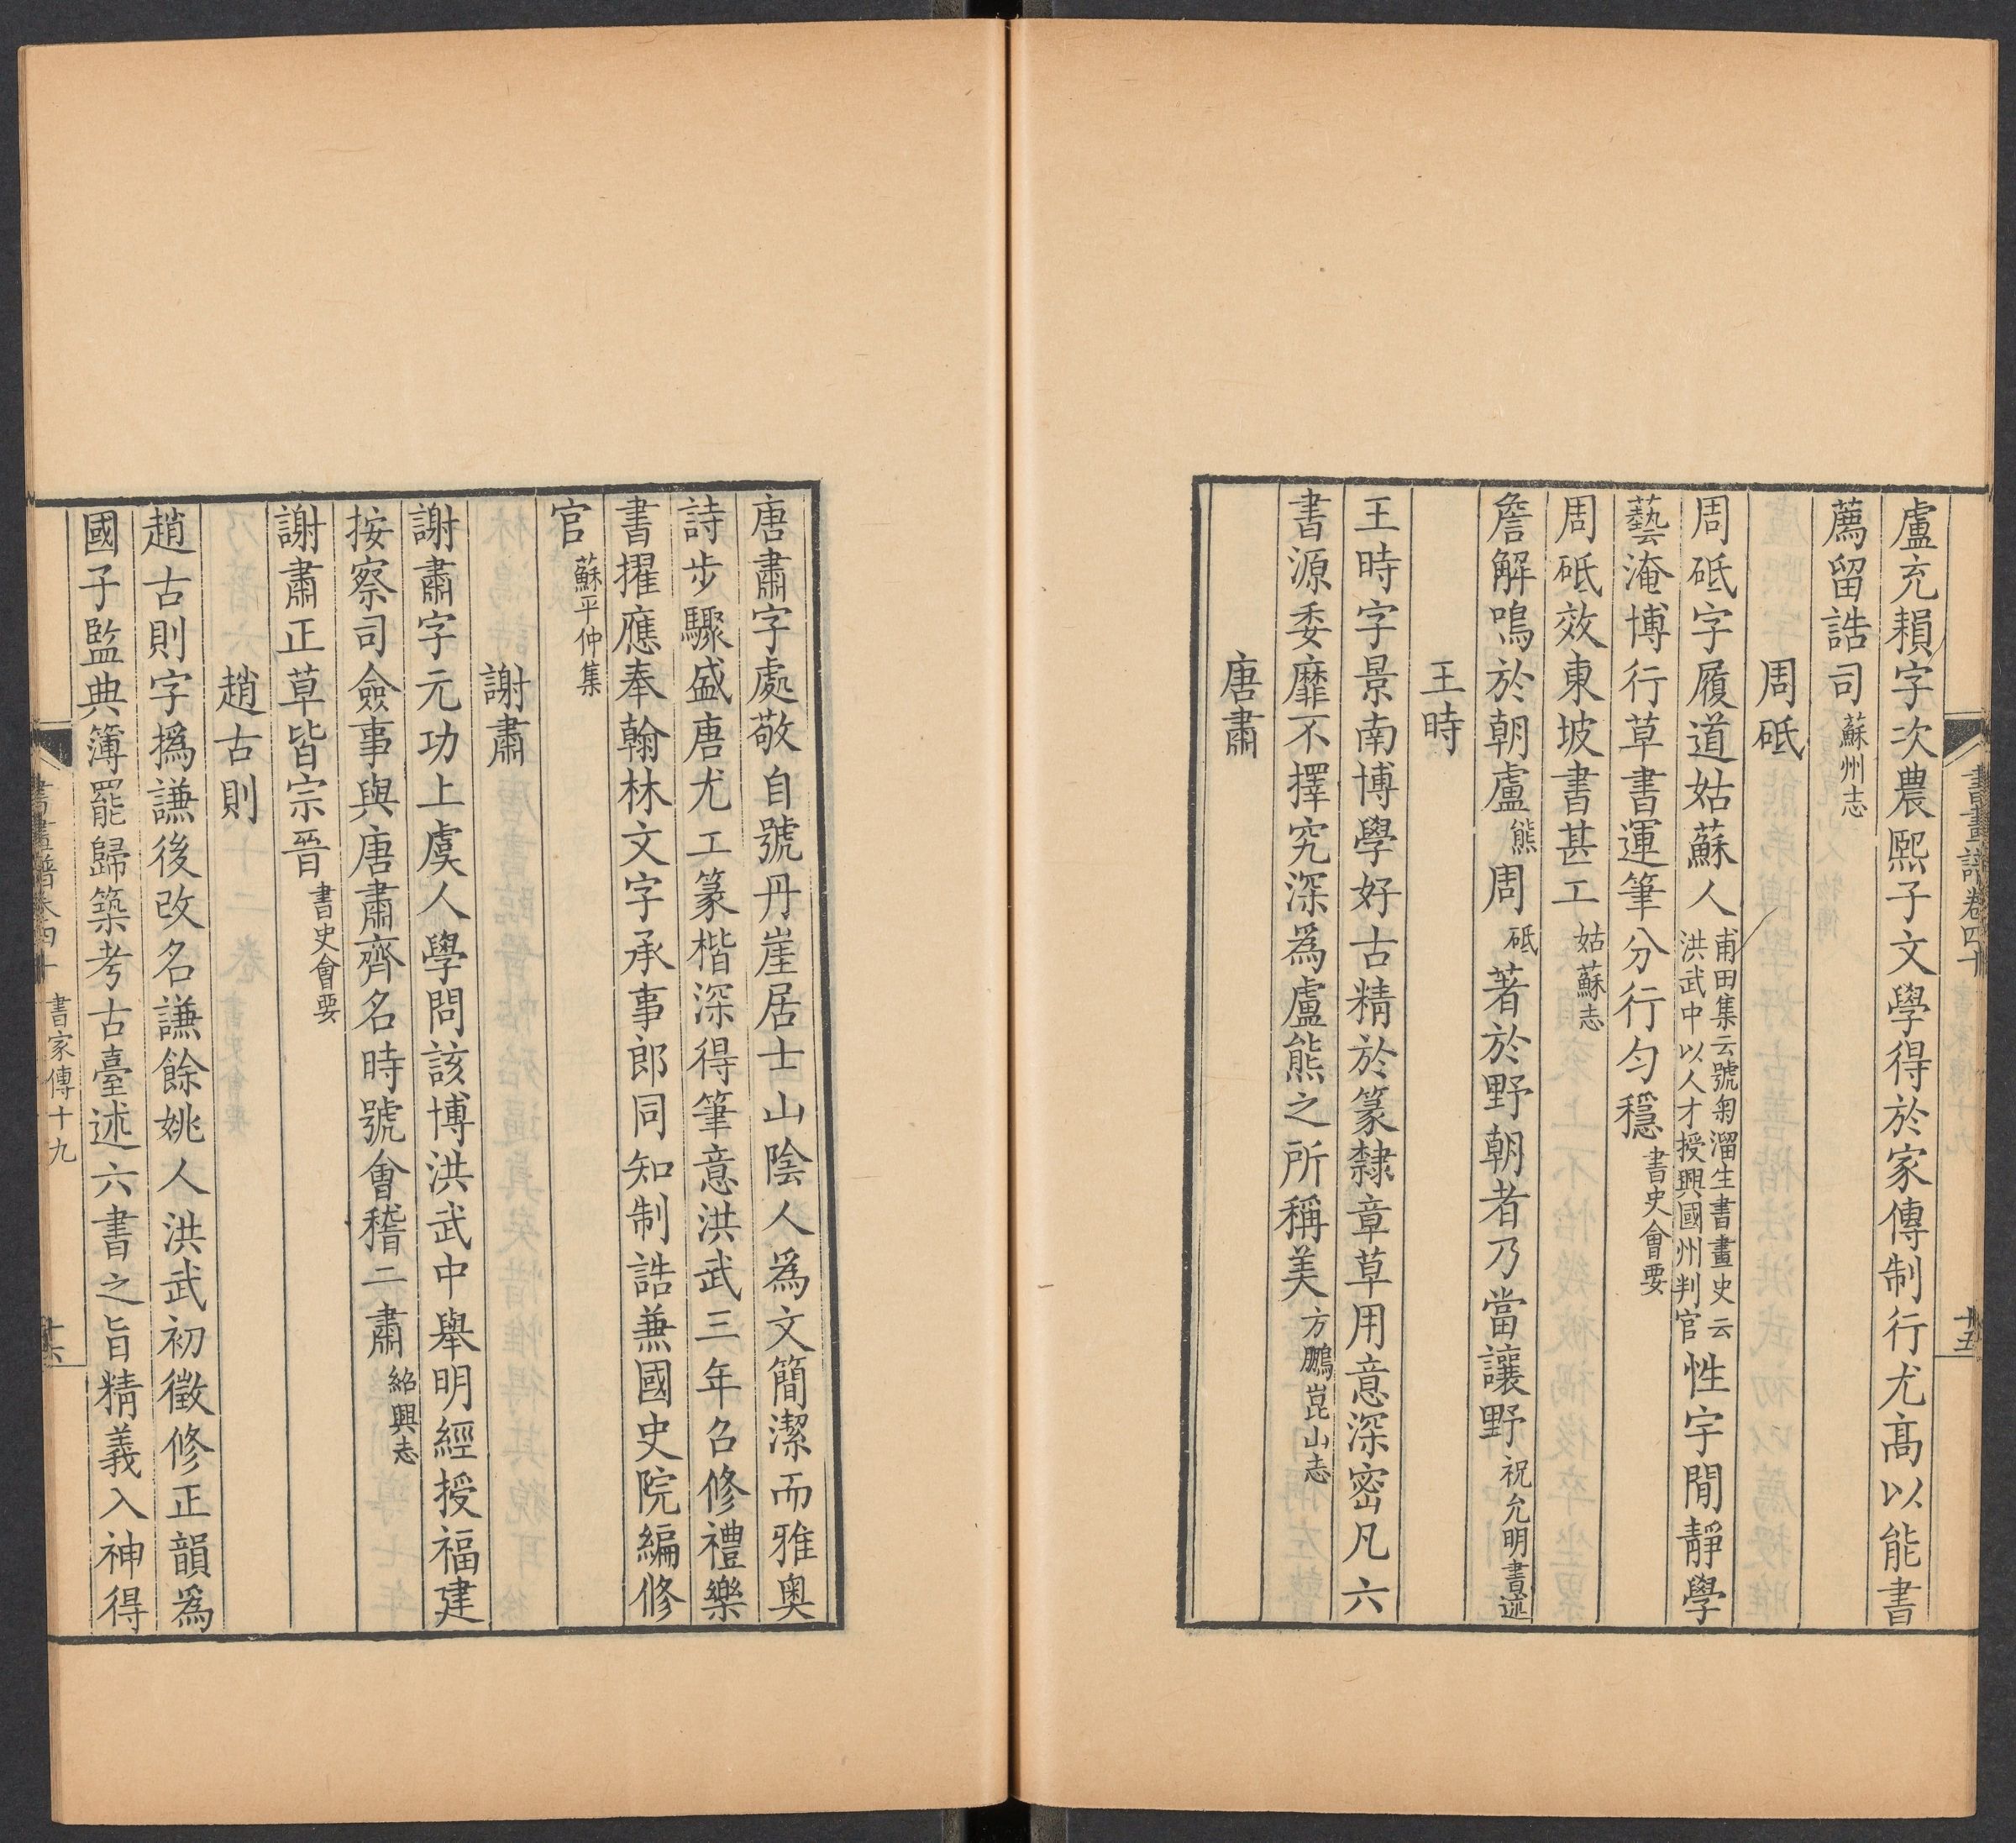 盧充賴字次農熙子文學得於家傳制行尤高以能書
薦留誥司蘇州志
周砥
周砥字履道姑蘇人甫田集云號匊溜生書畫史云洪武中以人才授興國州判官性宇閒靜學
藝淹博行草書運筆分行勻穩書史會要
周砥效東坡書甚工姑蘇志
詹解鳴於朝盧熊周砥著於野朝者乃當讓野祝允明書述
王時
王時字景南博學好古精於篆隸章草用意深密凡六
書源委靡不擇究深為盧熊之所稱美方鵬崑山志
唐肅
書畫譜卷四十
十五
唐肅字處敬自號丹崖居士山陰人為文簡潔而雅奥
詩步驟盛唐尤工篆楷深得筆意洪武三年召修禮樂
書擢應奉翰林文字承事郎同知制誥兼國史院編修
官蘇平仲集
謝肅
謝肅字元功上虞人學問該博洪武中舉明經授福建
按察司僉事與唐肅齊名時號會稽二肅紹興志
謝肅正草皆宗晉書史會要
趙古則
趙古則字撝謙後改名謙餘姚人洪武初徵修正韻為
國子監典簿罷歸築考古臺述六書之旨精義入神得
書畫譜卷四十 書家傳十九
十六